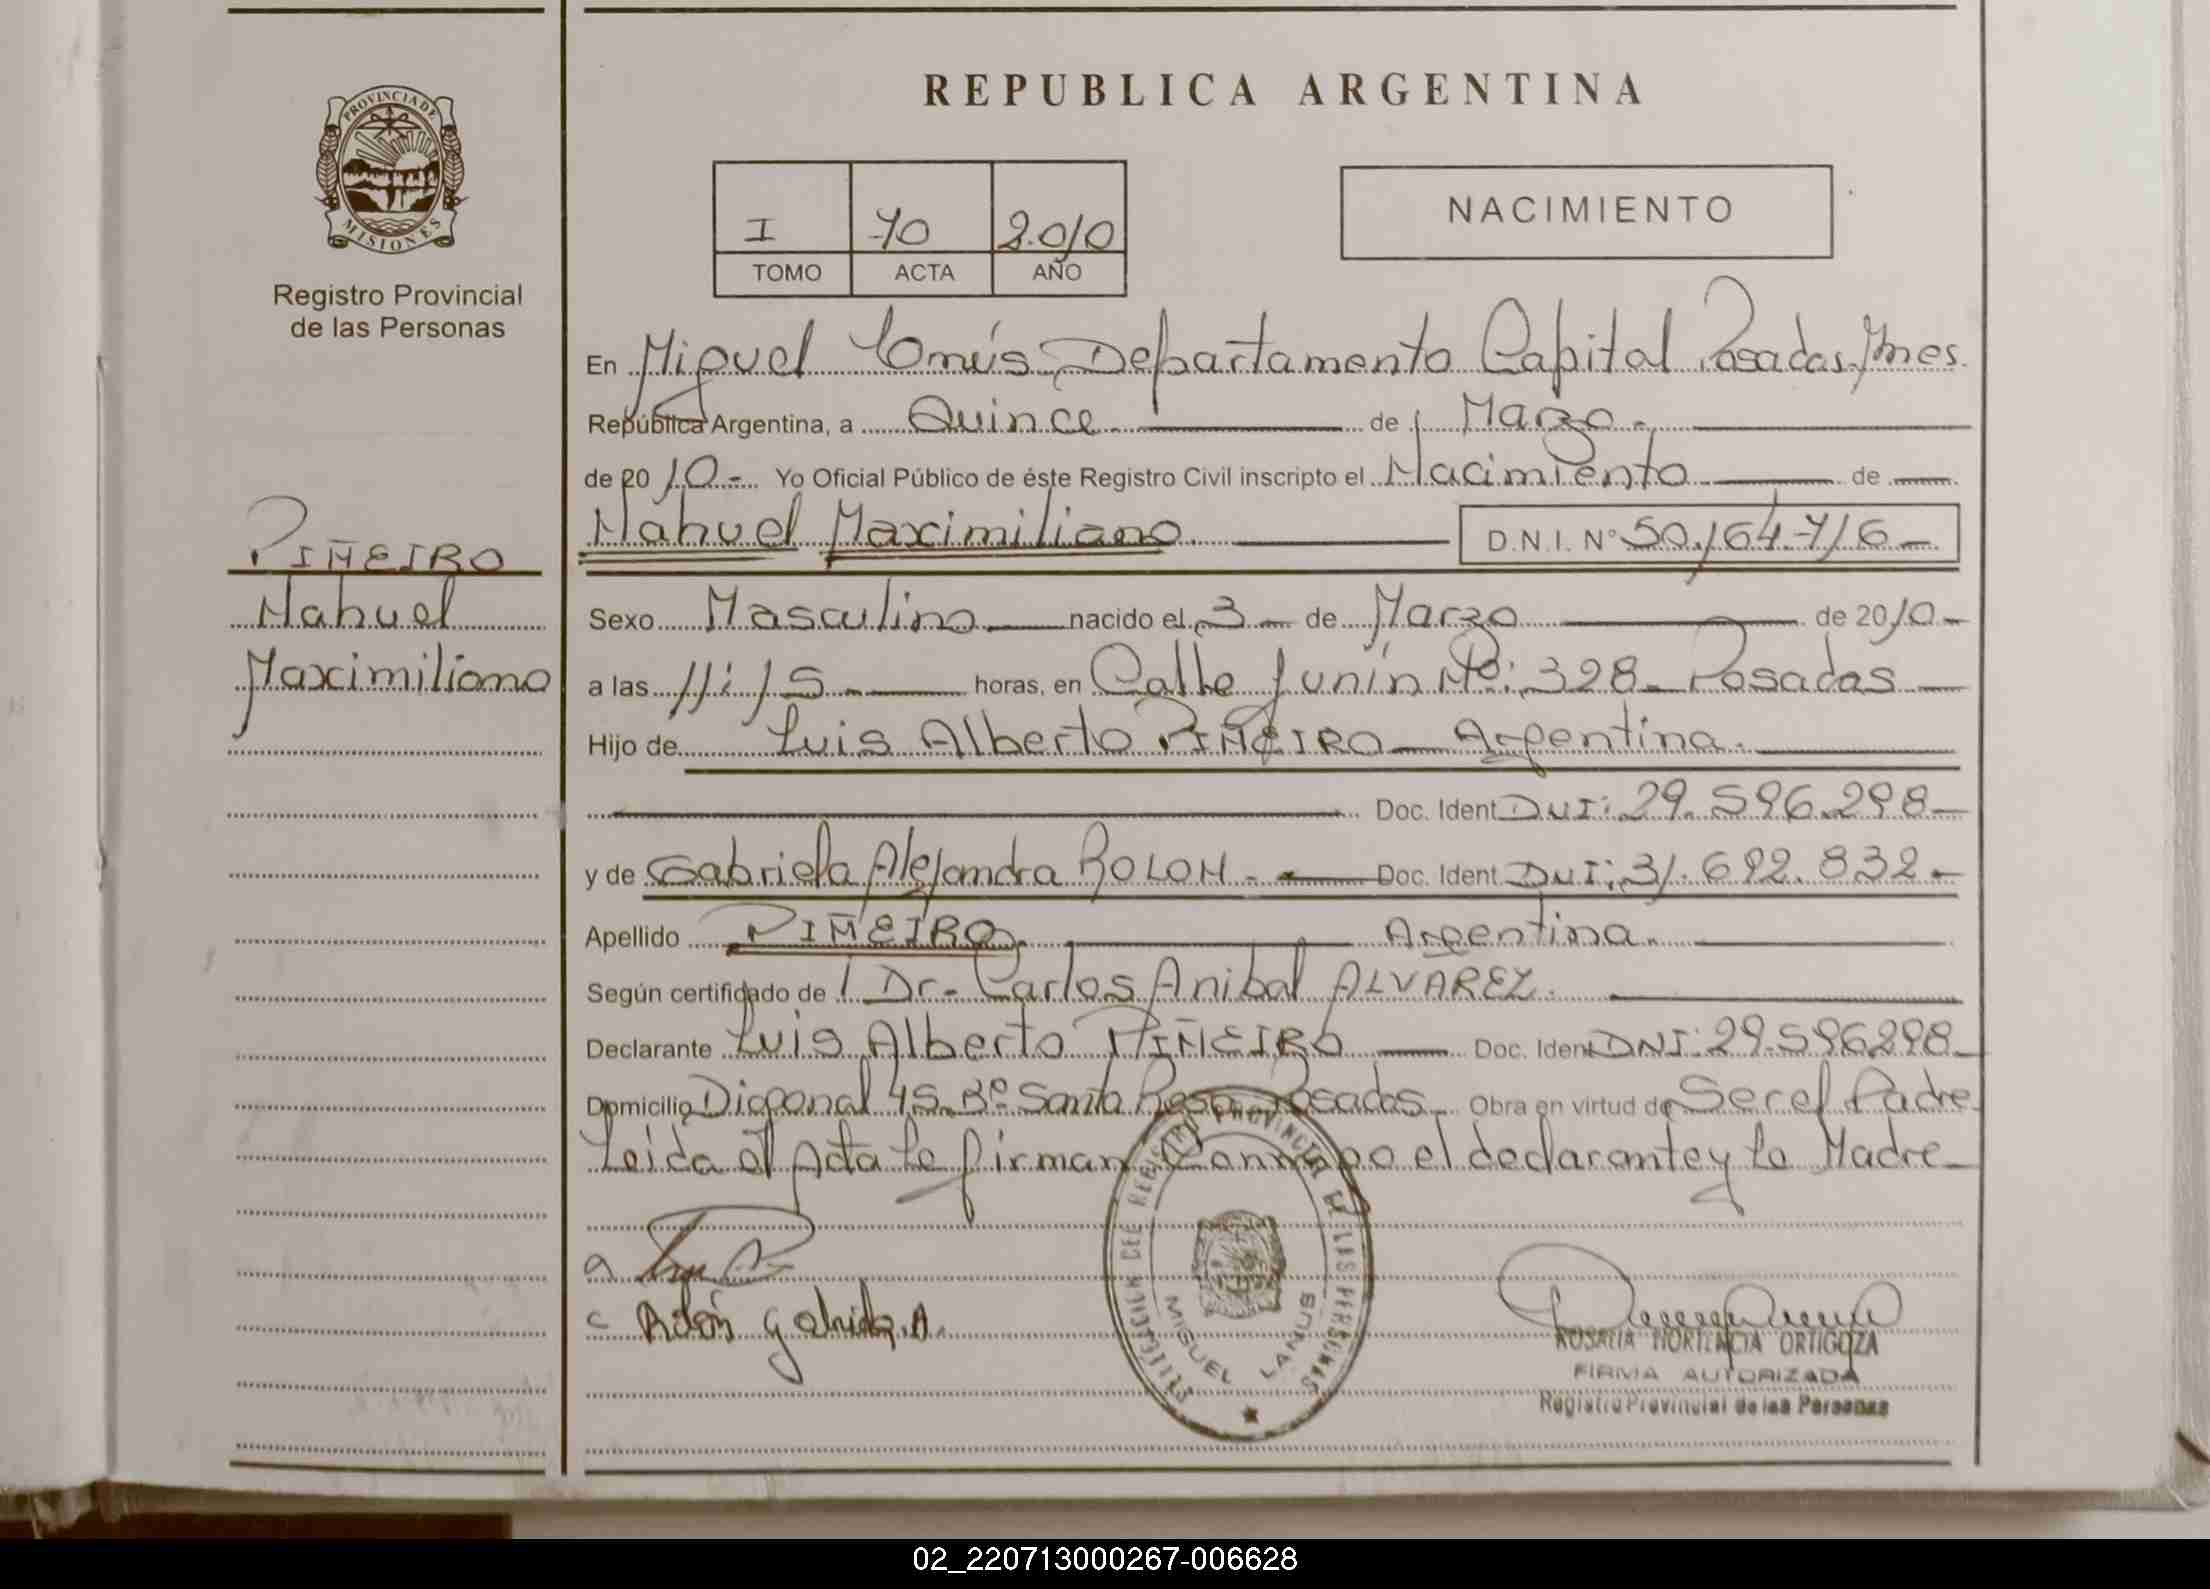 REPUBLICA ARGENTINA
PROVINCIA DE
MISIONES
Registro Provincial
de las Personas
I 70 2.010
TOMO ACTA AÑO
NACIMIENTO
En Miguel Lanús, Departamento Capital Posadas, Mnes.
República Argentina, a Quince de Marzo.
de 2010.- Yo Oficial Público de éste Registro Civil inscripto el Nacimiento de
Nahuel Maximiliano. D.N.I. Nº 50.164.716
PIÑEIRO
Nahuel
Maximiliano
Sexo Masculino nacido el 3 de Marzo de 2010
a las 11:15 horas, en Calle Junín Nº: 328 Posadas
Hijo de Luis Alberto PIÑEIRO Argentina.
Doc. Ident DNI: 29.596.298
y de Gabriela Alejandra ROLON. Doc. Ident. DNI: 31.692.832
Apellido PIÑEIRO. Argentina.
Según certificado de Dr. Carlos Anibal ALVAREZ.
Declarante Luis Alberto PIÑEIRO Doc. Ident DNI: 29.596298
Domicilio Diagonal 45 Bº Santa Rosa Posadas Obra en virtud de Ser el Padre
Leida el Acta la firman Conmigo el declarante y la Madre
Rolón Gabriela.A.
DELEGACION DEL REGISTRO PROVINCIAL DE LAS PERSONAS
MIGUEL LANUS
ROSALIA HORTENCIA ORTIGOZA
FIRMA AUTORIZADA
Registro Provincial de las Personas
02_220713000267-006628